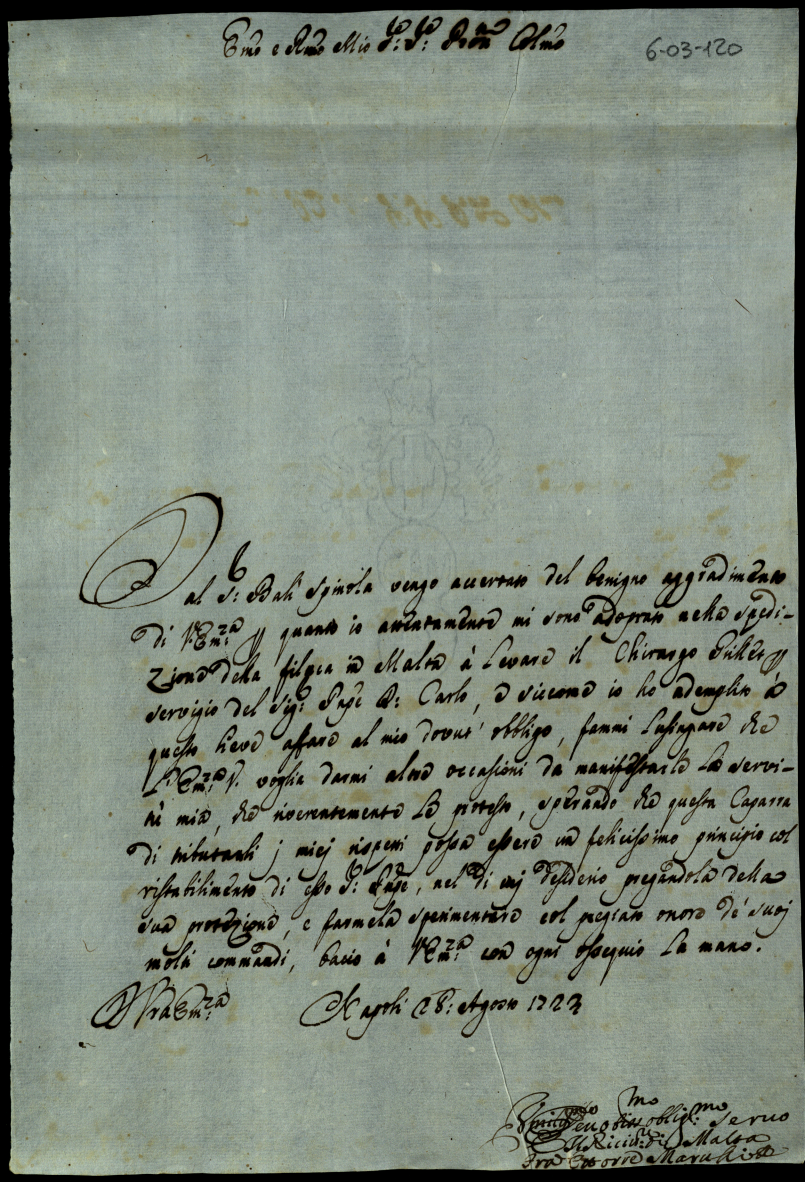 Emo e Rmo Mio Sr: Sr: Pron Colmo
6-03-120
Dal Sr: Balì Spinola vengo accertato del benigno aggradimento
di V. Em:za quanto io attentamente mi sono adoprato nella spedi-
zione della filuca in Malta à levare il Chirurgo
servizio del Sig:r Pnpe D: Carlo, e siccome io ho adempito à
questo lieve affare al mio dovut' obbligo, fammi lusingare che
L'Em:za V. voglia darmi altre occasioni da manifestarle la servi-
tù mia, che riverentemente le protesto, sperando che questa Caparra
di tributarli i miei rispetti possa essere un felicissimo principio col
ristabilimento di esso Sr: Pnpe, nel di cui desiderio pregandola della
sua protezione, e farmela sperimentare col pregiato onore de' suoi
molti commandi, bacio à V. Em:za con ogni ossequio la mano.
D Vra Em:za Napoli 28: Agosto 1723
Devotmo obligmo Servo
Il Ricivre di Malta
Fra Ettorre Marulli